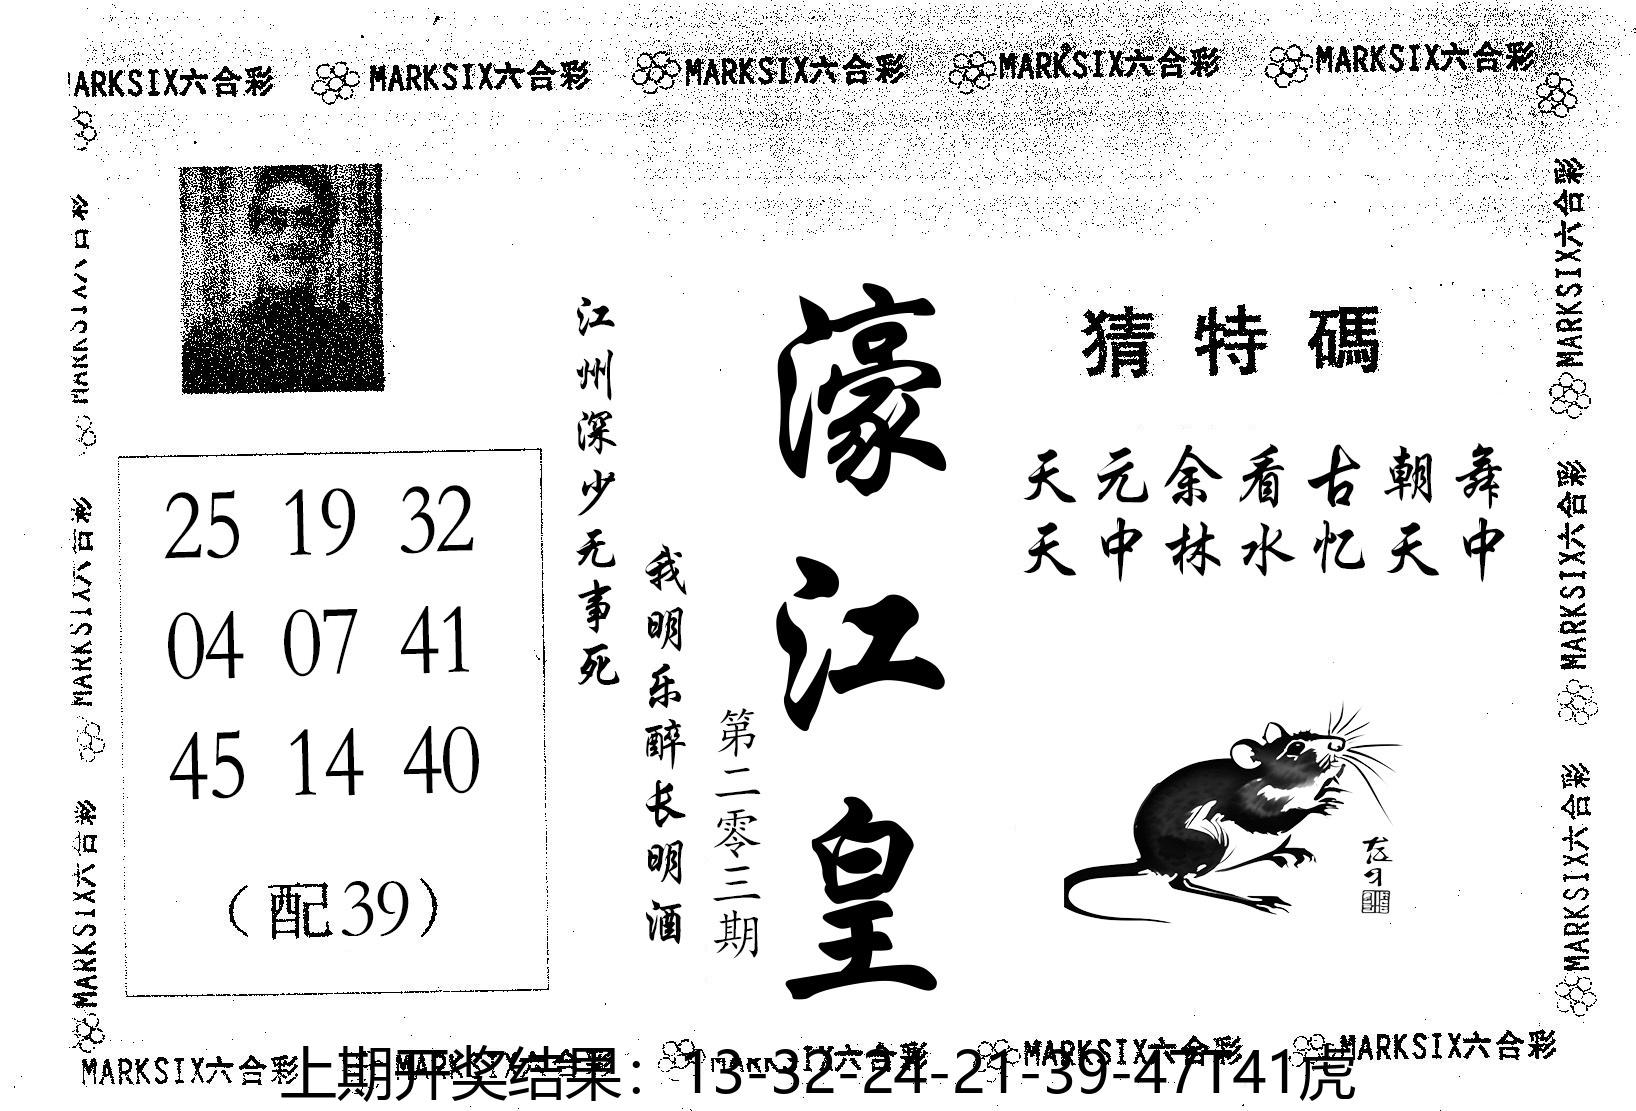 MARKSIX六合彩 MARKSIX六合彩 MARKSIX六合彩 MARKSIX六合彩 MARKSIX六合彩
猜特碼
天元余看古朝舞
天中林水忆天中
濠江皇
第二零三期
我明乐醉长明酒
江州深少无事死
25 19 32
04 07 41
45 14 40
（配39）
MARKSIX六合彩
MARKSIX六合彩
MARKSIX六合彩
MARKSIX六合彩
MARKSIX六合彩
MARKSIX六合彩
MARKSIX六合彩 MARKSIX六合彩 MARKSIX六合彩 MARKSIX六合彩 MARKSIX六合彩
上期开奖结果：13-32-24-21-39-47T41虎